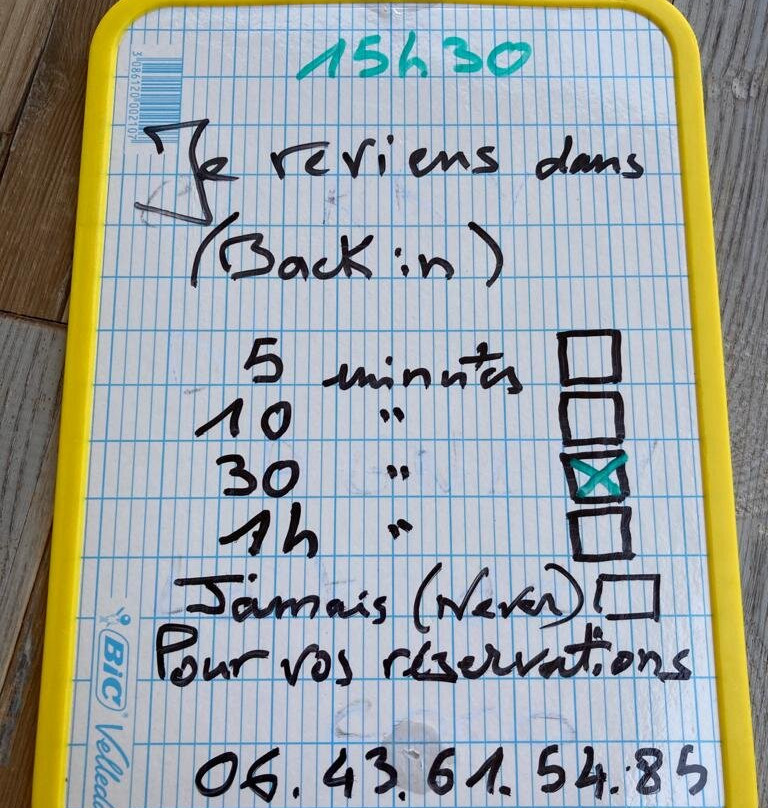 15h30
3 086120 002107
Je reviens dans
(Back in)
5 minutes
10 "
30 "
1h "
Jamais (Never)
Pour vos réservations
06.43.61.54.85
BIC Velleda